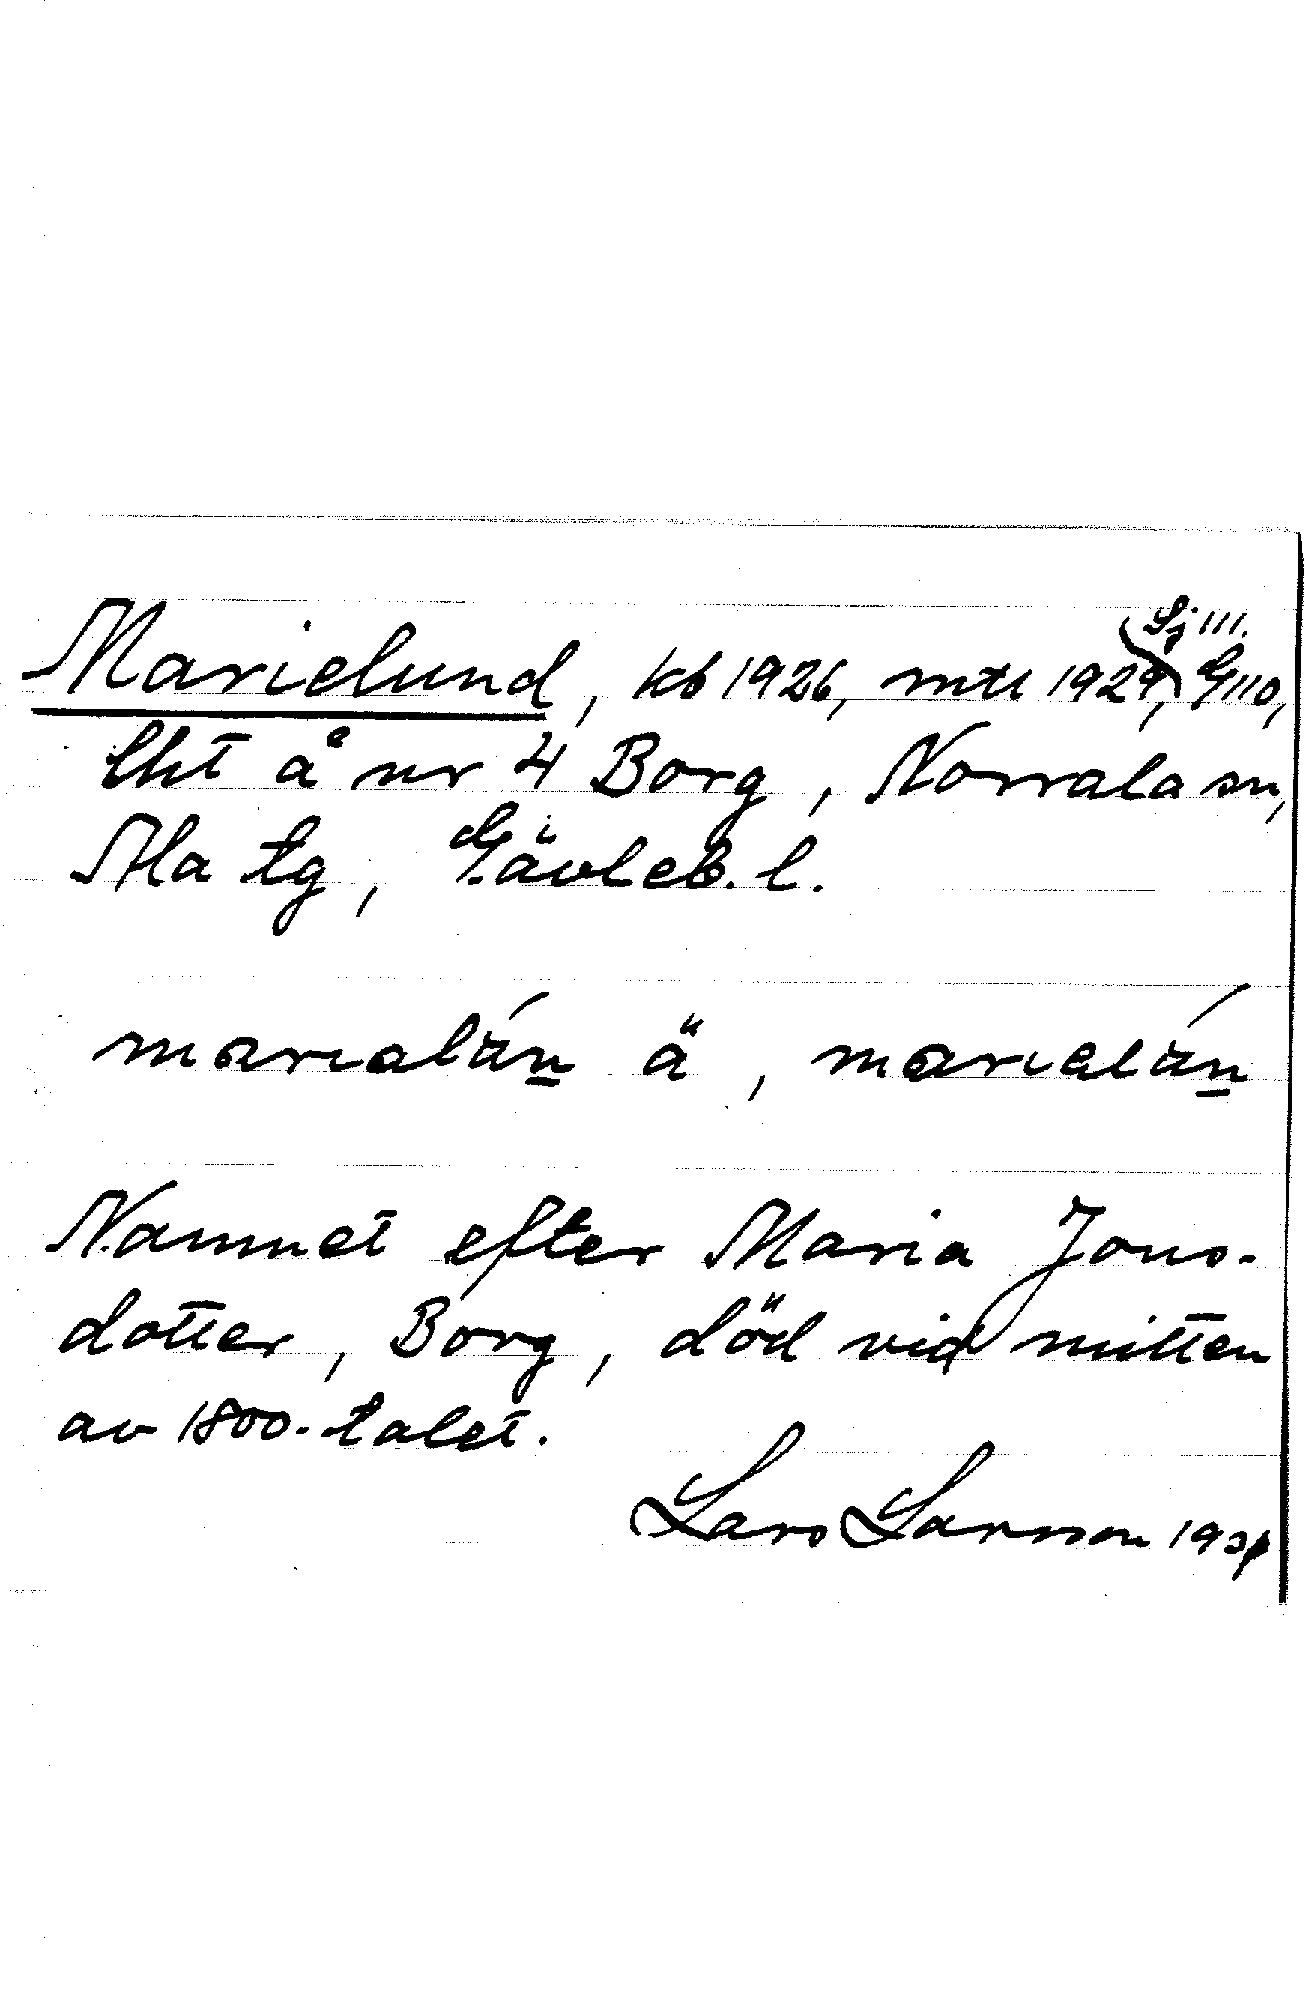 Sj 111.
Marielund, kb 1926, mtl 1929, G110,
lht å nr 4 Borg, Norrala sn,
Ala tg, Gävleb. l.
marialún ä, marialún
Namnet efter Maria Jons-
dotter, Borg, död vid mitten
av 1800-talet.
Lars Larsson